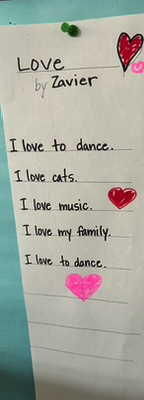 Love
by Zavier
I love to dance.
I love cats.
I love music.
I love my family.
I love to dance.